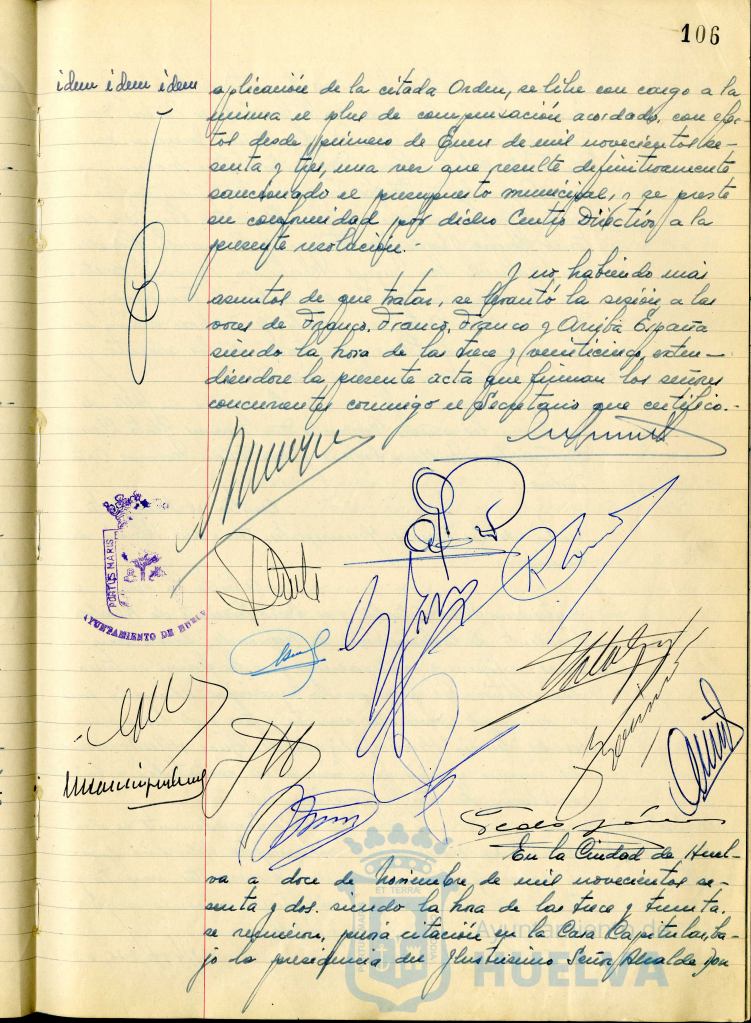 106
idem idem idem
aplicación de la citada Orden, se libre con cargo a la
misma el plus de compensación acordado, con efec-
tos desde primero de Enero de mil novecientos se-
senta y tres, una vez que resulte definitivamente
sancionado el presupuesto municipal, y se preste
su conformidad por dicho Centro Directivo a la
presente resolución.-
Y no habiendo más
asuntos de que tratar, se levantó la sesión a las
voces de Franco, Franco, Franco y Arriba España
siendo la hora de las trece y veinticinco, exten-
diendose la presente acta que firman los señores
concurrentes conmigo el Secretario que certifico.-
PORTUS MARIS
AYUNTAMIENTO DE HUELVA
En la Ciudad de Huel-
va a doce de Noviembre de mil novecientos se-
senta y dos, siendo la hora de las trece y treinta,
se reunieron, previa citación en la Casa Capitular, ba-
jo la presidencia del Ilustrisimo Señor Alcalde Don
ET TERRAE
Ayuntamiento de
HUELVA